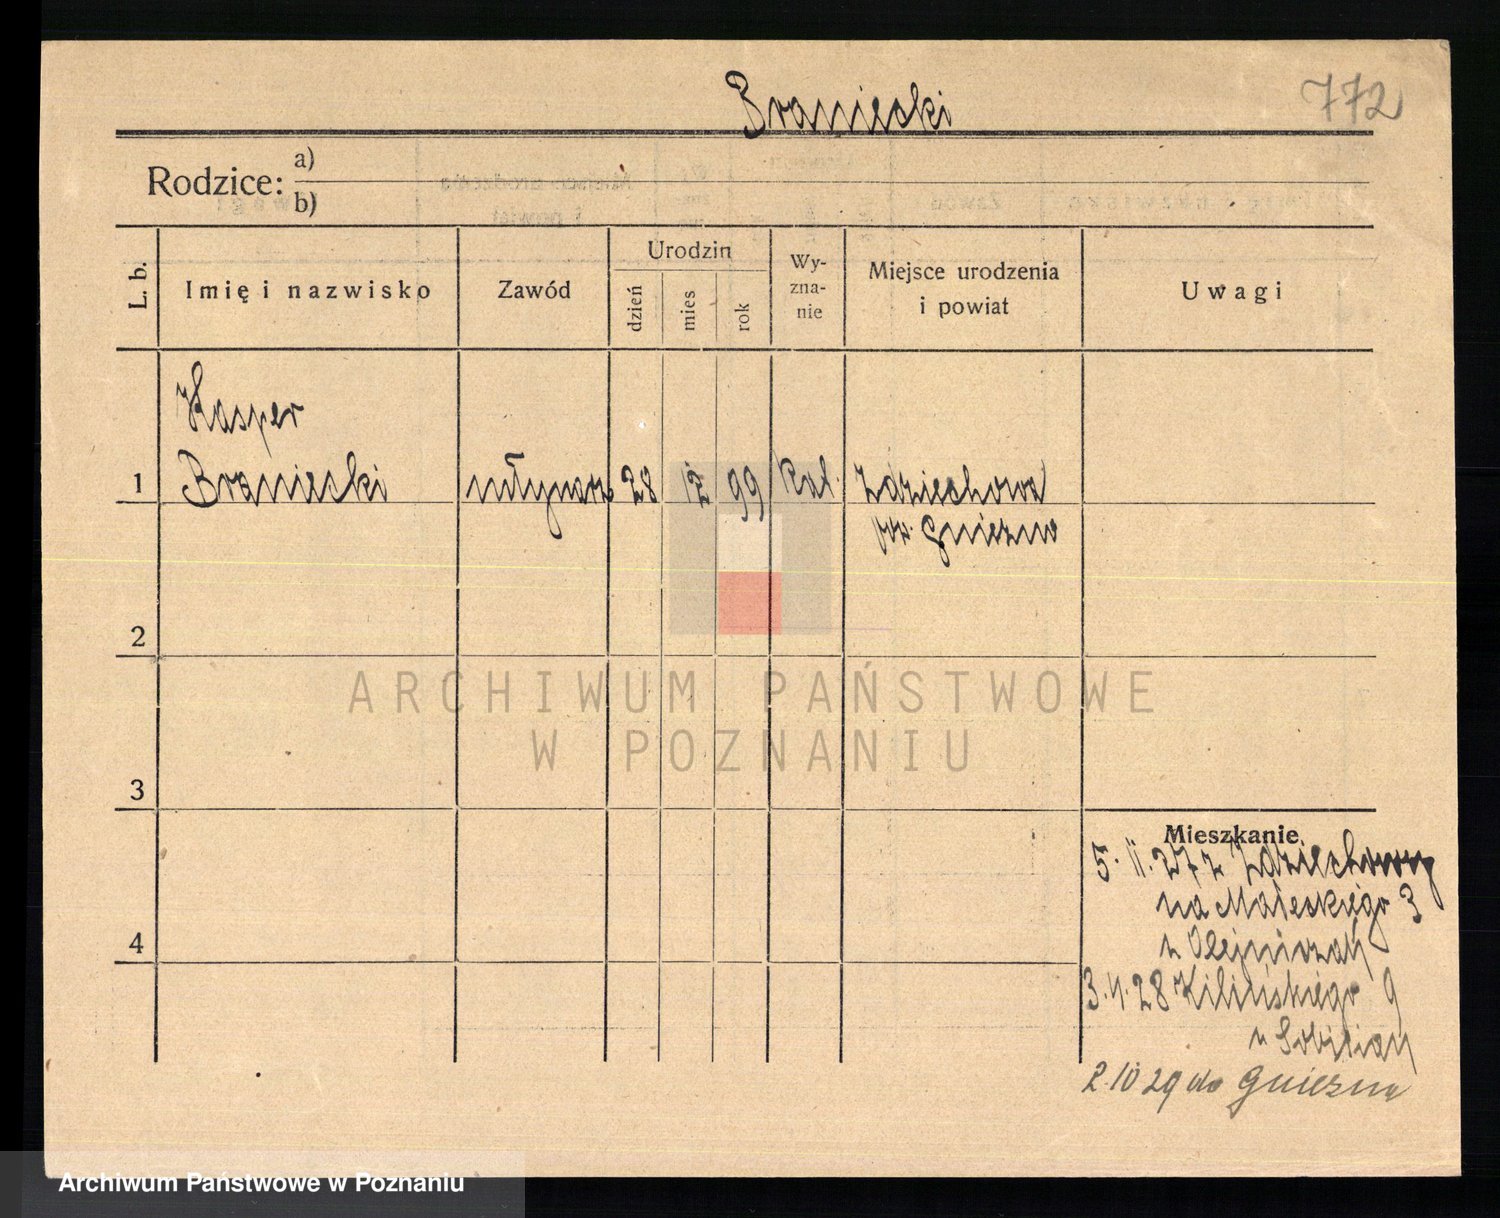 Braniecki
772
Rodzice: a)
b)
L. b.
Imię i nazwisko
Zawód
Urodzin
dzień
mies
rok
Wy-
zna-
nie
Miejsce urodzenia
i powiat
Uwagi
Kasper
1 Braniecki młynarz 28 12 99 Kat. Zdziechowa
pow. Gniezno
2
ARCHIWUM PAŃSTWOWE
W POZNANIU
3
Mieszkanie
5. 11. 27 z Zdziechowy
na 3
u
4
3. 4. 28 Kilińskiego 9
u
2. 10 29 do Gniezna
Archiwum Państwowe w Poznaniu